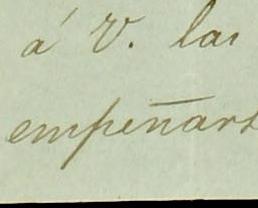 á V. las
empeñars